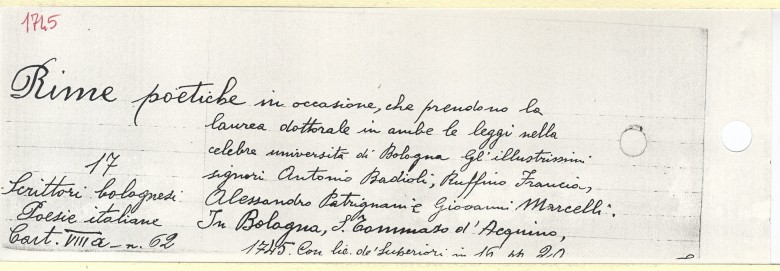 1745
Rime poetiche in occasione, che prendono la
laurea dottorale in ambe le leggi nella
celebre università di Bologna Gl'illustrissimi
signori Antonio Badioli, Ruffino Francia,
Alessandro Patrignani e Giovanni Marcelli.
In Bologna, S. Tommaso d'Acquino,
1745. Con lic. de' Superiori in 16
17
Scrittori bolognesi
Poesie italiane
Cart. VIII a - n. 62